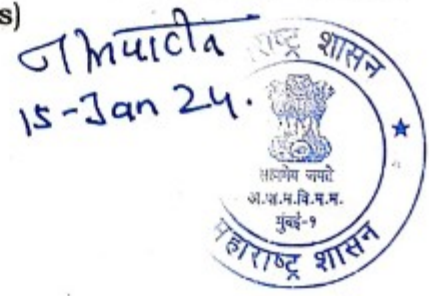 s)
15-Jan 24.
महाराष्ट्र शासन
सत्यमेव जयते
मुंबई-१
महाराष्ट्र शासन